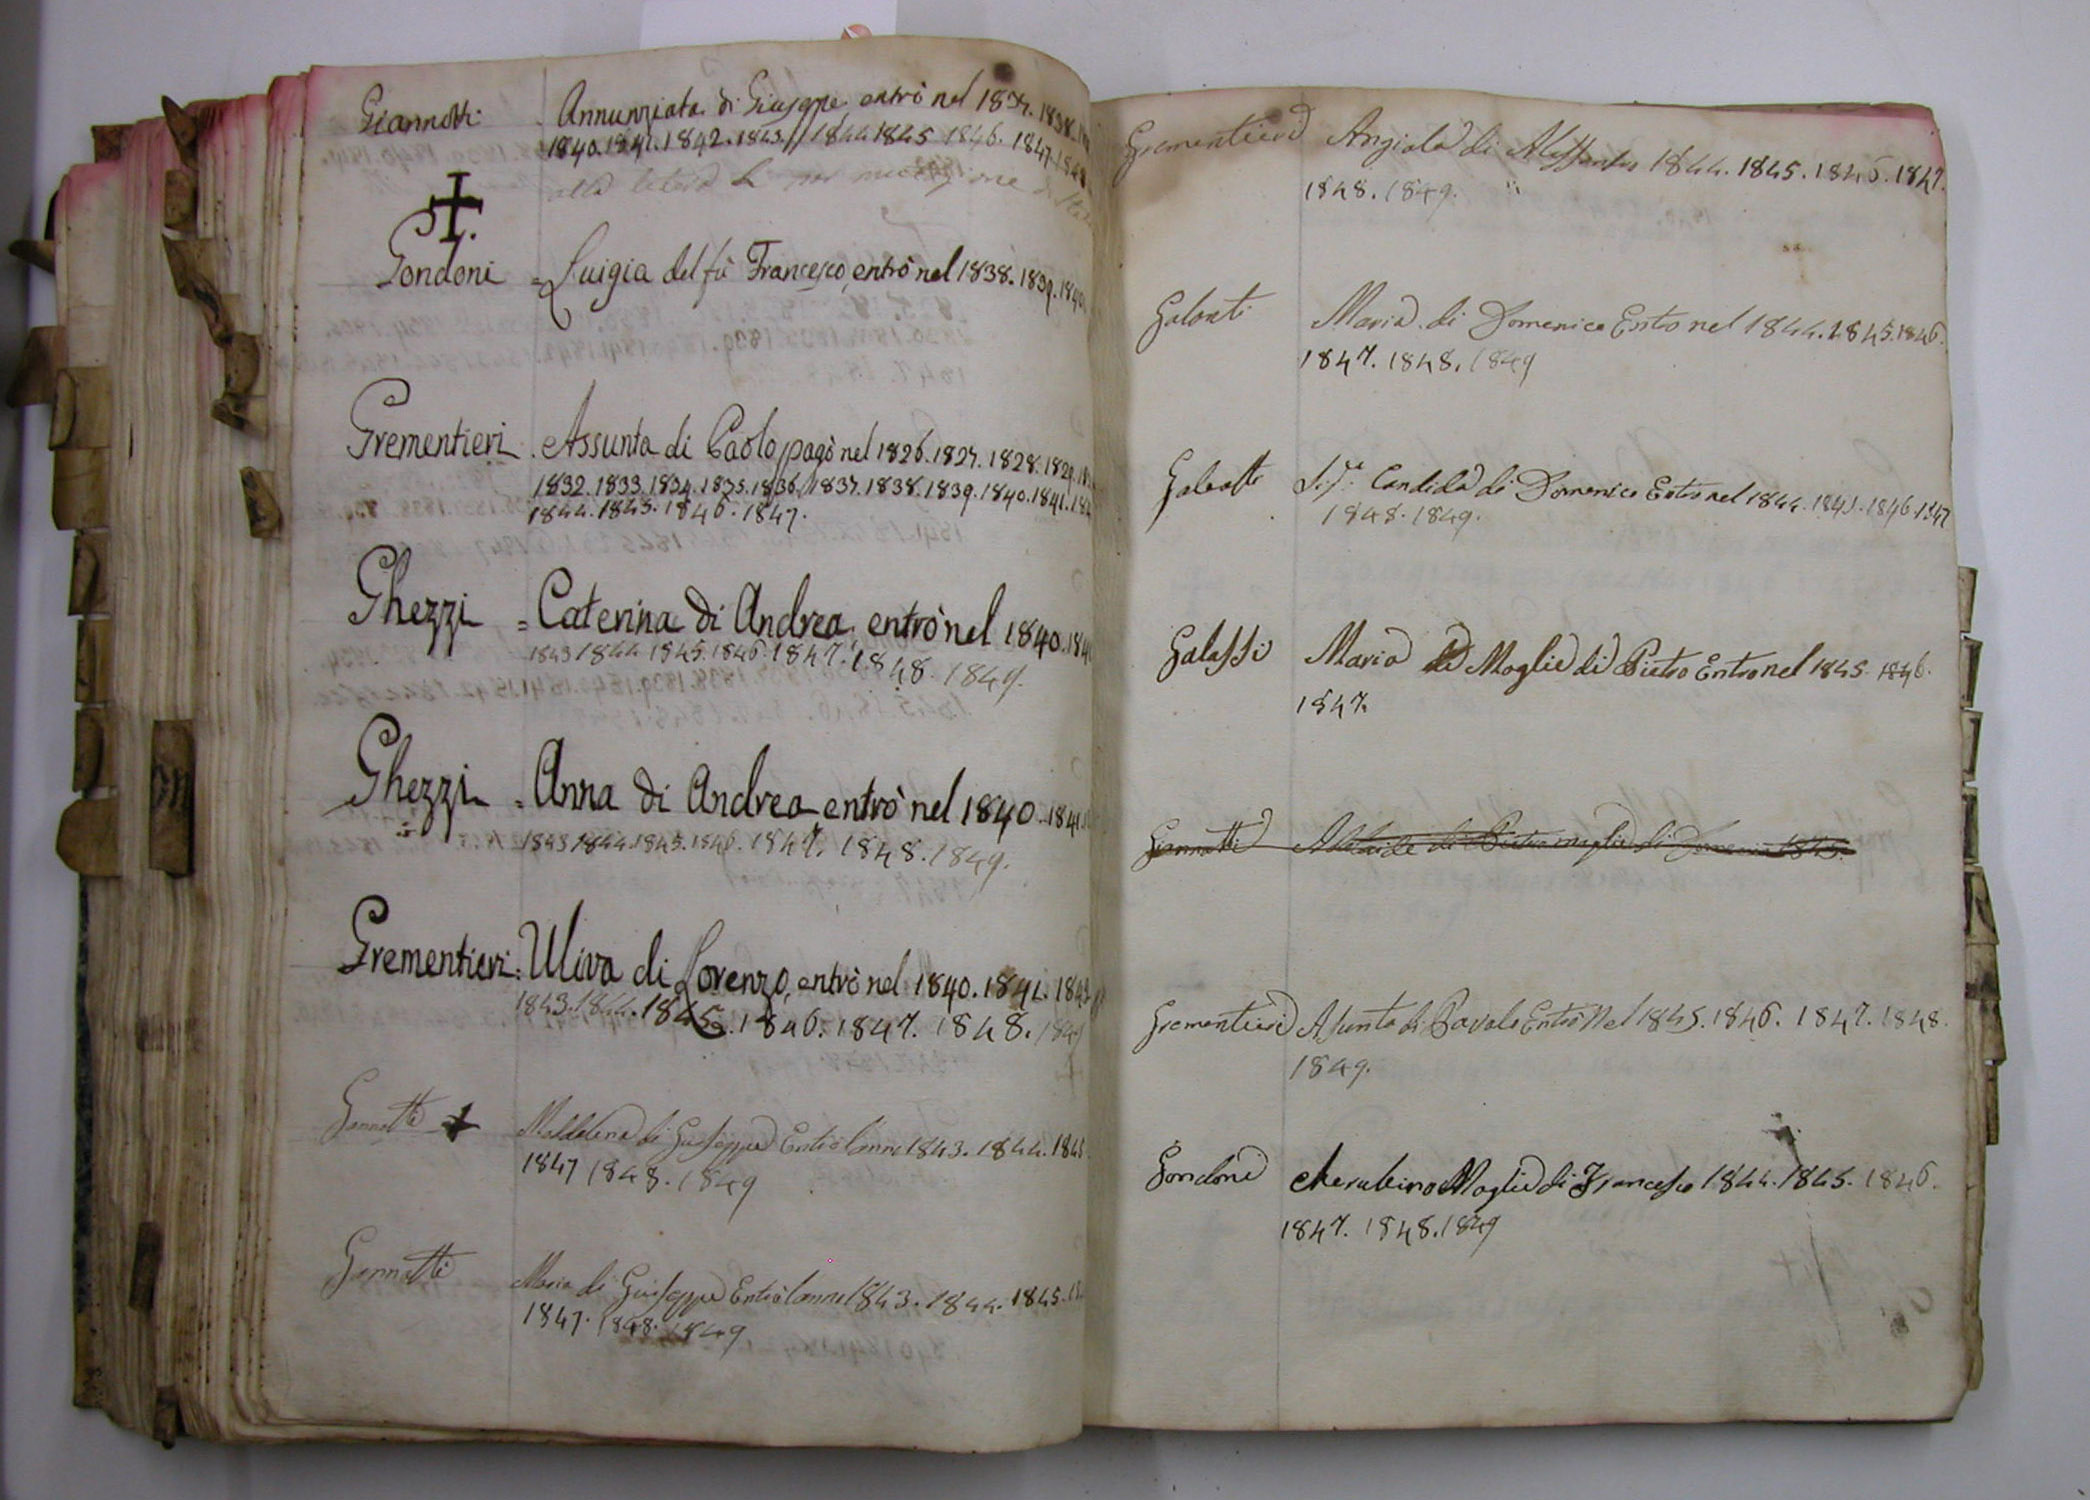 Giannotti Annunziata di Giuseppe entrò nel 1837. 1838.
1840. 1841. 1842. 1843. 1844 1845 1846. 1847. 1848.
alla letera
Gondoni = Luigia del fù Francesco, entrò nel 1838. 1839. 1840
Grementieri. Assunta di Paolo, pagò nel 1826. 1827. 1828. 1829.
1832. 1833. 1834. 1835. 1836. 1837. 1838. 1839. 1840. 1841.
1844. 1845. 1846. 1847.
Ghezzi = Caterina di Andrea, entrò nel 1840. 1841
1843 1844 1845. 1846. 1847. 1848. 1849.
Ghezzi = Anna di Andrea entrò nel 1840. 1841.
1843 1844. 1845. 1846. 1847. 1848. 1849.
Grementieri: Uliva di Lorenzo, entrò nel 1840. 1841. 1842
1843. 1844. 1845. 1846. 1847. 1848. 1849
Gennotti Maddalena di Giuseppe Entrò l'anno 1843. 1844. 1845
1847 1848. 1849
Gennotti Maria di Giuseppe Entrò l'anno 1843. 1844. 1845.
1847. 1848. 1849
Grementieri Angiola di 1844. 1845. 1846. 1847.
1848. 1849.
Galeati Maria di Domenico Entro nel 1844. 1845. 1846.
1847. 1848. 1849
Galeatti Candida di Domenico Entro nel 1844. 1845. 1846. 1847
1848. 1849.
Galassi Maria Moglie di Pietro Entro nel 1845. 1846.
1847.
Giannotti Adelaide di Pietro moglie di 1845.
Grementieri Asunta di Pavolo Entrò Nel 1845. 1846. 1847. 1848.
1849.
Gondoni Cherubina Moglie di Francesco 1844. 1845. 1846.
1847. 1848. 1849